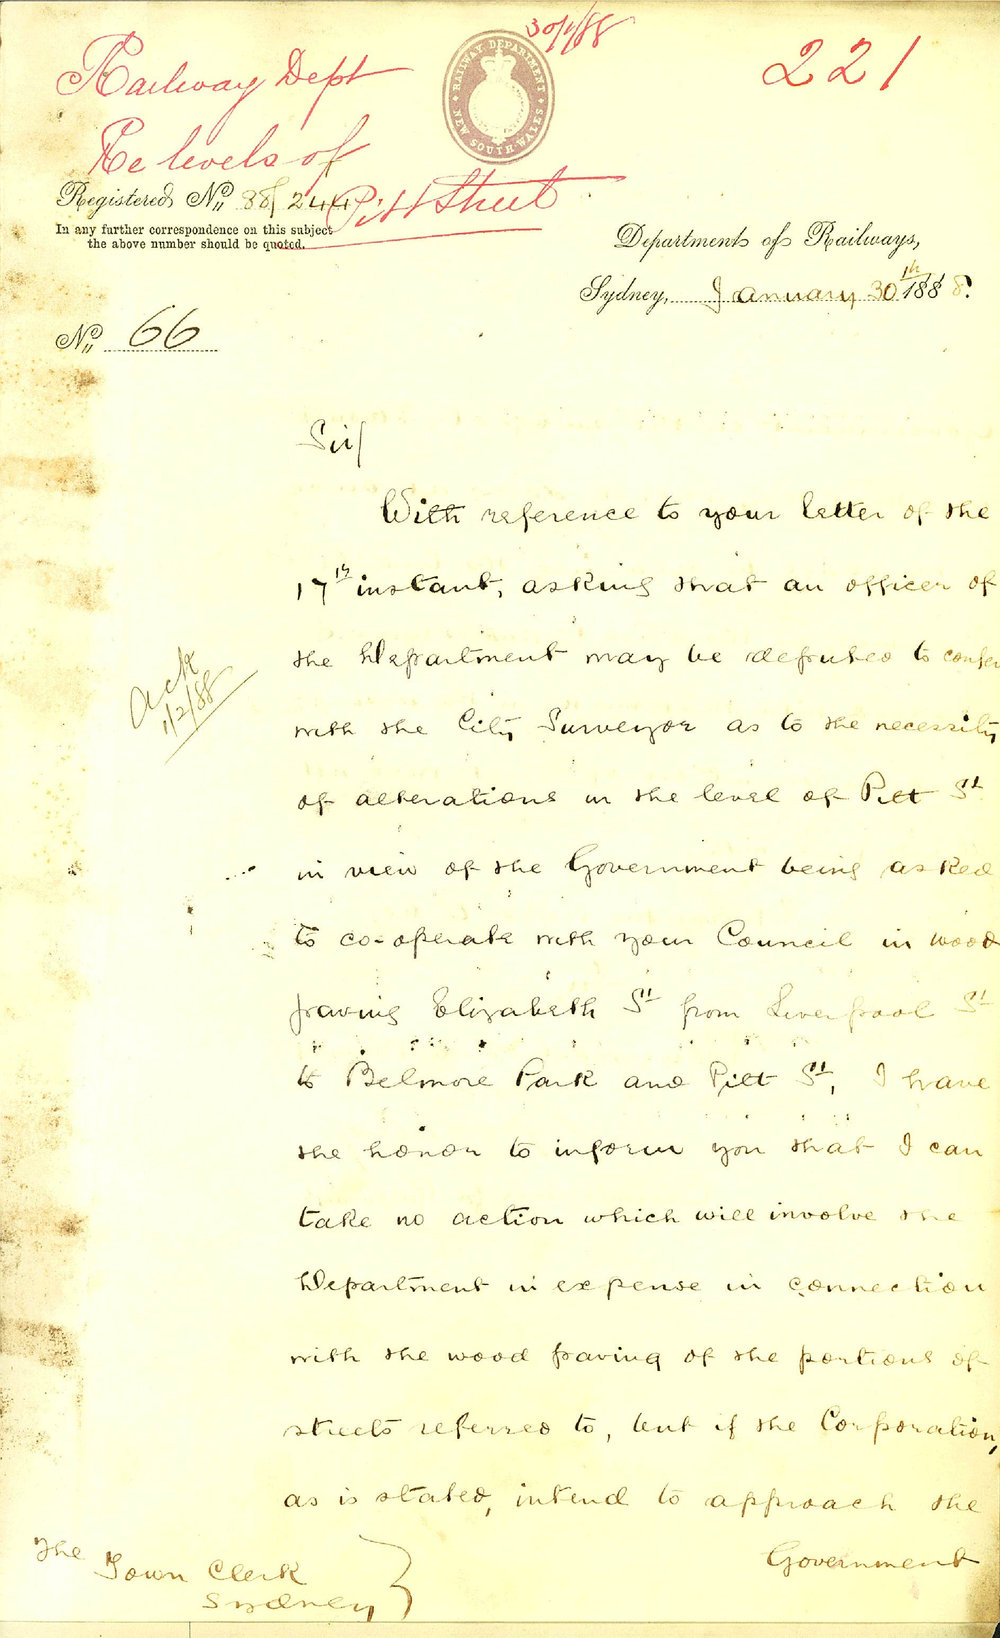 30/1/88
221
Railway Dept
Re levels of
Pitt Street
RAILWAY DEPARTMENT
NEW SOUTH WALES
Registered No. 88/244
In any further correspondence on this subject
the above number should be quoted.
Department of Railways,
Sydney, January 30th 1888.
No. 66
Sir/
With reference to your letter of the
17th instant, asking that an officer of
the Department may be deputed to confer
with the City Surveyor as to the necessity
of alterations in the level of Pitt St
in view of the Government being asked
to co-operate with your Council in wood
paving Elizabeth St from Liverpool St
to Belmore Park and Pitt St, I have
the honor to inform you that I can
take no action which will involve the
Department in expense in connection
with the wood paving of the portions of
streets referred to, but if the Corporation,
as is stated, intend to approach the
Government
Ack
1/2/88
The Town Clerk
Sydney